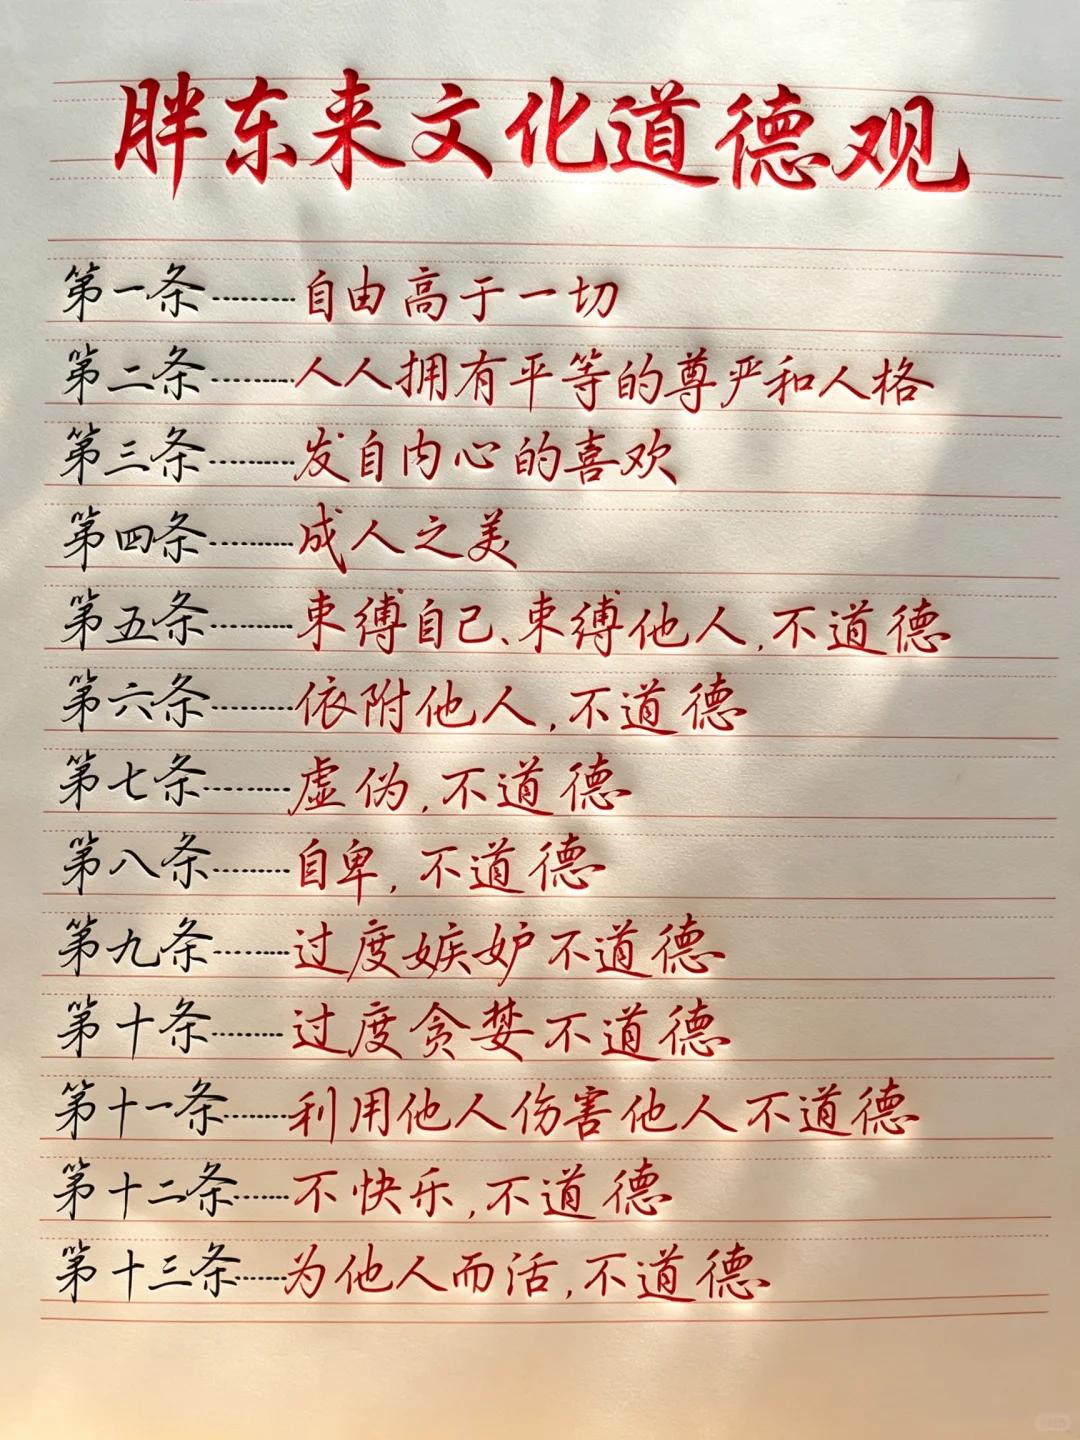 胖东来文化道德观
第一条………自由高于一切
第二条………人人拥有平等的尊严和人格
第三条………发自内心的喜欢
第四条………成人之美
第五条………束缚自己、束缚他人,不道德
第六条………依附他人,不道德
第七条………虚伪,不道德
第八条………自卑,不道德
第九条………过度嫉妒不道德
第十条………过度贪婪不道德
第十一条………利用他人伤害他人不道德
第十二条………不快乐,不道德
第十三条………为他人而活,不道德